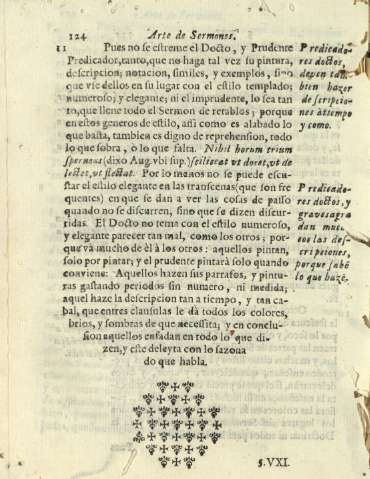 124 Arte de Sermones.
11 Pues no se estreme el Docto, y Prudente
Predicador, tanto, que no haga tal vez su pintura,
descripcion; notacion, similes, y exemplos, sino
que vse dellos en su lugar con el estilo templado;
numeroso; y elegante; ni el imprudente, lo sea tan
to, que llene todo el Sermon de retablos; porque
en estos generos de estilo, assi como es alabado lo
que basta, tambien es digno de reprehension, todo
lo que sobra, ò lo que falta. Nihil horum trium
spernens (dixo Aug. vbi sup.) scilicèt vt doret, vt de
lectet, vt flectat. Por lo menos no se puede escu-
sar el estilo elegante en las transcenas (que son fre
quentes) en que se dan a ver las cosas de passo
quando no se discurren, sino que se dizen discur-
ridas. El Docto no tema con el estilo numeroso,
y elegante parecer tan mal, como los otros; por-
que và mucho de èl à los otros: aquellos pintan,
solo por pintar; y el prudente pintarà solo quando
conviene: Aquellos hazen sus parrafos, y pintu-
ras gastando periodos sin numero, ni medida;
aquel haze la descripcion tan a tiempo, y tan ca-
bal, que entres clausulas le dà todos los colores,
brios, y sombras de que necessita; y en conclu-
sion aquellos enfadan en todo lo que di-
zen, y este deleyta con lo sazona
do que habla.
Predicado-
res doctos,
deven tam-
bien hazer
descripcio-
nes à tiempo
y como.
Predicado-
res doctos, y
graves agra
dan mucho
con las des-
cripciones,
porque sabē
lo que hazē.
§. VXI.